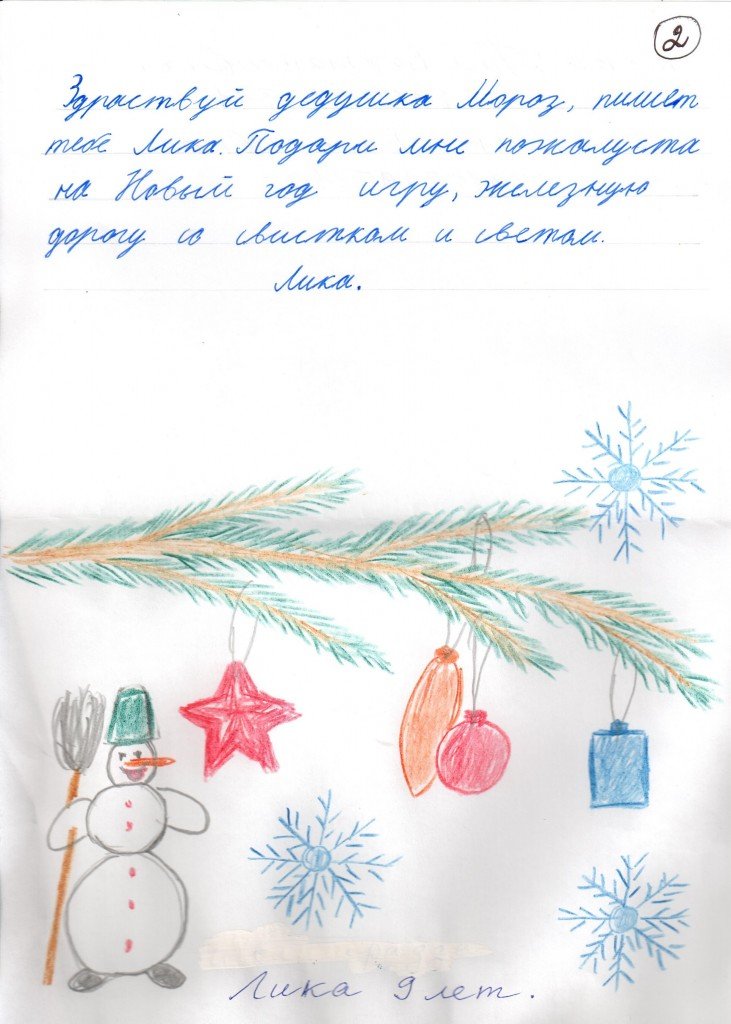 2
Здраствуй дедушка Мороз, пишет
тебе Лика. Подари мне пожалуста
на Новый год игру, железную
дорогу со свистком и светом.
Лика.
Лика 9 лет.